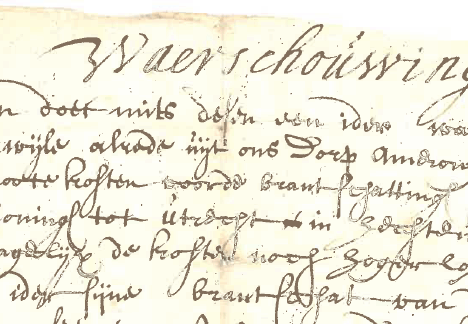 Waerschouwing
n doet mits desen een ider wae
wijle alrede uijt ons dorp Ameron
oote kosten voorde brantschattingh
oningh tot Utrecht in hechte
agelijx de kosten noch hoger lo
ider sijne brantschat van